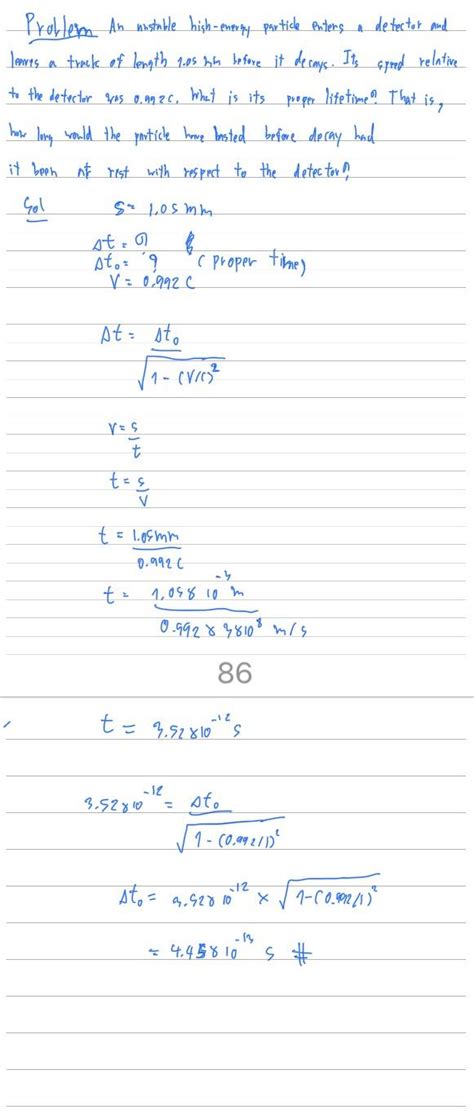 Problem An unstable high-energy particle enters a detector and
leaves a track of length 1.05 mm before it decays. Its speed relative
to the detector was 0.992c. What is its proper lifetime? That is,
how long would the particle have lasted before decay had
it been at rest with respect to the detector?
Sol S = 1.05 mm
Δt = ?
Δt₀ = ? (proper time)
V = 0.992 C
Δt = Δt₀
√1 - (V/C)²
V = s
t
t = s
V
t = 1.05mm
0.992C
t = 1.05 x 10⁻³ m
0.992 x 3x10⁸ m/s
86
t = 3.52 x10⁻¹² s
3.52x10⁻¹² = Δt₀
√1 - (0.992/1)²
Δt₀ = 3.52x10⁻¹² × √1-(0.992/1)²
= 4.45x10⁻¹³ s #